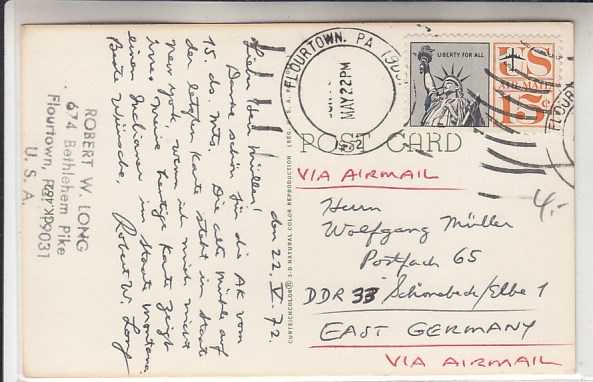 den 22. V. 72.
Lieber Herr Müller!
Danke schön für die AK vom
15. ds. Mts. Die alte Mühle auf
der letzten Karte steht im Staate
New York, wenn ich mich nicht
irre. Meine heutige Karte zeigt
einen Indianer im Staate Montana.
Beste Wünsche, Robert W. Long
ROBERT W. LONG
674 Bethlehem Pike
Flourtown, PA.
19031
U. S. A.
CURTEICHCOLOR® 3-D NATURAL COLOR REPRODUCTION
FLOURTOWN, PA
MAY 22 PM
1972
LIBERTY FOR ALL
US
AIR MAIL
15¢
FLOURT
POST CARD
VIA AIRMAIL
4,-
Herrn
Wolfgang Müller
Postfach 65
DDR 33 Schönebeck/Elbe 1
EAST GERMANY
VIA AIRMAIL